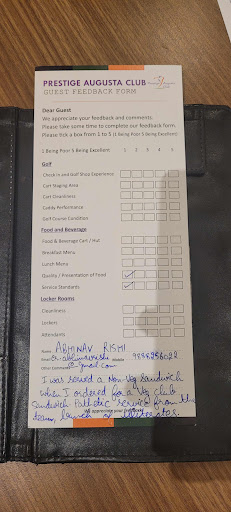 PRESTIGE AUGUSTA CLUB
GUEST FEEDBACK FORM
Dear Guest
We appreciate your feedback and comments.
Please take some time to complete our feedback form.
Please tick a box from 1 to 5 (1 Being Poor 5 Being Excellent)
1 Being Poor 5 Being Excellent 1 2 3 4 5
Golf
Check in and Golf Shop Experience
Cart Staging Area
Cart Cleanliness
Caddy Performance
Golf Course Condition
Food and Beverage
Food & Beverage Cart / Hut
Breakfast Menu
Lunch Menu
Quality / Presentation of Food
Service Standards
Locker Rooms
Cleanliness
Lockers
Attendants
Name: ABHINAV RISHI
Email Mobile
Other Comments @gmail.com
I was served a Non-Veg Sandwich
when I ordered for a Veg Club
Sandwich Pathetic service from the
team,